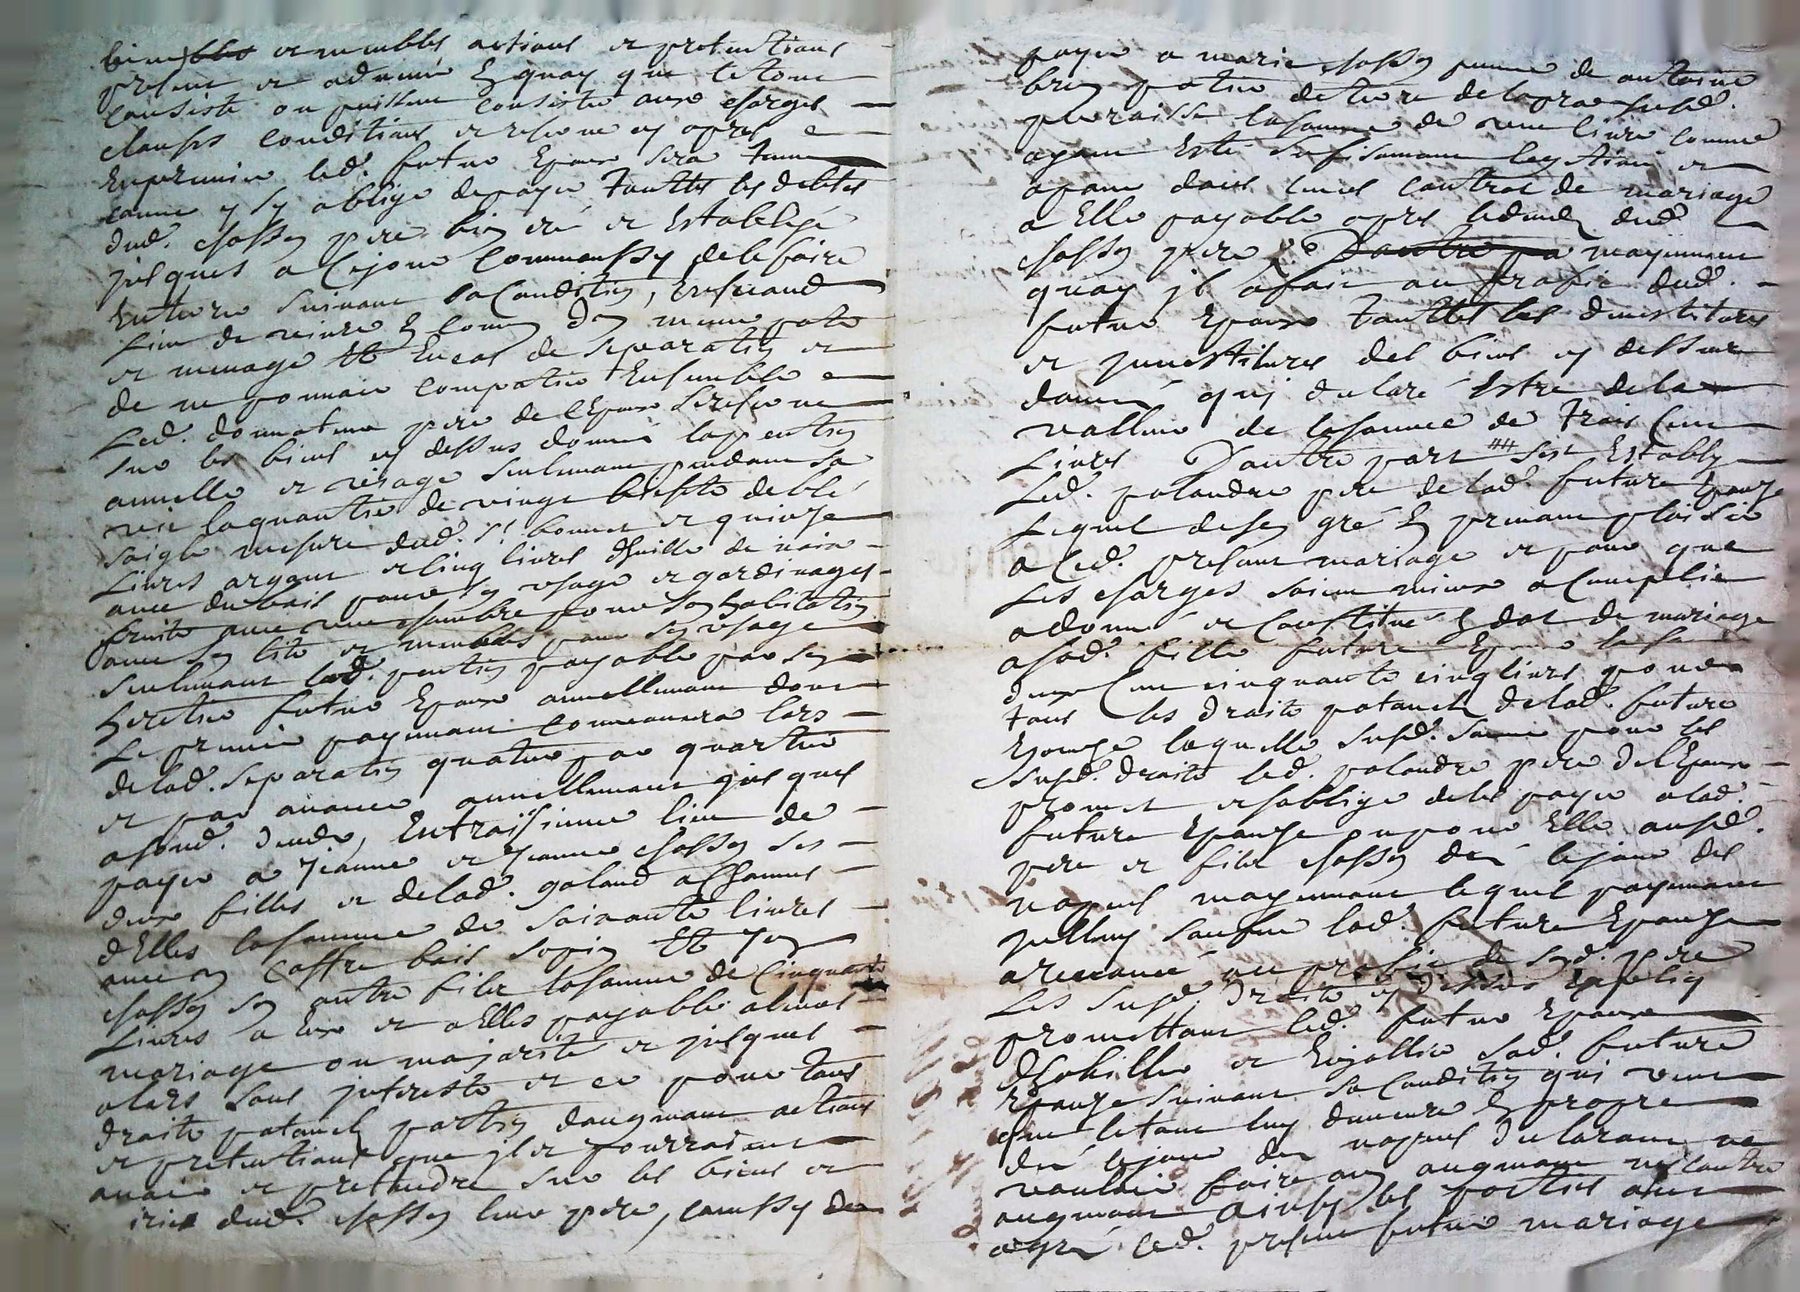 bien ~~bles~~ et meubles actions et pretentions
presents et advenir En quoy que le tout
consiste ou puissent consister aux charges
clauses conditions et reserve cy apres
Exprimées led. futur Epoux sera tenu
comme y sy oblige de payer touttes les debtes
dud. chassy pere bien deue et Establyé
jusques a ce jour comm'aussy de le faire
Enterrer suivant sa Condition, En second
lieu de vivre En commun d'un meme pot
et menage Et En cas de separation et
de ne pouvoir compatir Ensemble
Led. donnateur pere de l'Epoux se reserve
sur les biens cy dessus donné la pention
annuelle et viagé seulement pendant sa
vie la quantité de vingt bichets de blé
saigle mesure dud. St bonnet et quinze
Livres argent et cinq livres d'huille de noix
avec du bois pour son usage et gardinages
fruits avec une chambre pour son habitation
avec son lit et meubles pour son usage
seulement lad. pention payable par son
heretier futur Epoux annuellement dont
Le premier payement commancera lors
de lad. separation quatier par quartier
et par avance annuellement jusques
a sond. deceds, En troissieme lieu de
payer a Jeanne et Jeanne chassy ses
deux filles et de lad. galand a chacunes
d'Elles la somme de soixante livres
avec un coffre bois sapin Et Jean
chassy son autre fils la somme de cinquante
Livres a Eux et a Elles payable a leurs
mariage ou majorité et jusques
alors sans interests et ce pour tous
droits paternels portion d'augment actions
et pretentions que ils pourroient
avoir et pretendre sur les biens et
dud. chassy leur pere, comm'aussy de
payer a marie chassy femme de antoine
pleraisse la somme de cent livres comme
ayant Esté sufisamment et
apané dans leurs contrat de mariage
a Elle payable apres le deceds dud.
chassy pere ~~D'autre pa~~ moyennant
quoy il a fait au profit dud.
futur Epoux touttes les devestitures
et investitures des biens cy dessus
donné qui declaré Estre de la
valleur de la somme de trois Cent
Livres D'autre part sest Estably
Led. palandre pere de lad. future Epouze
Lequel de son gré En prenant plaisir
a ced. present mariage et pour que
Les charges soient mieux acomplie
a donné et constitué En dot de mariage
a sad. fille future Epouze
deux Cent cinquante cinq livres pour
tous les droits paternels de lad. future
Epouze laquelle susd. somme pour les
susd. droits led. palandre pere de l'Epouze
promet et soblige de les payer a lad.
future Epouze ou pour Elle ausd.
pere et fils chassy dez le jour des
nopces moyennant lequel payement
lad. future Epouze
a renoncé au profit de sond. pere
Les susd. droits cy dessus Expliq
promettant led. futur Epoux
d'habiller et Enjoallier sad. future
Epouze suivant sa Condition qui veut
que le tout luy demeure En propre
dez le jour des nopces declarant ne
vouloir faire aucun augment ny contre
augment ainsy les parties ont
agréé led. present futur mariage